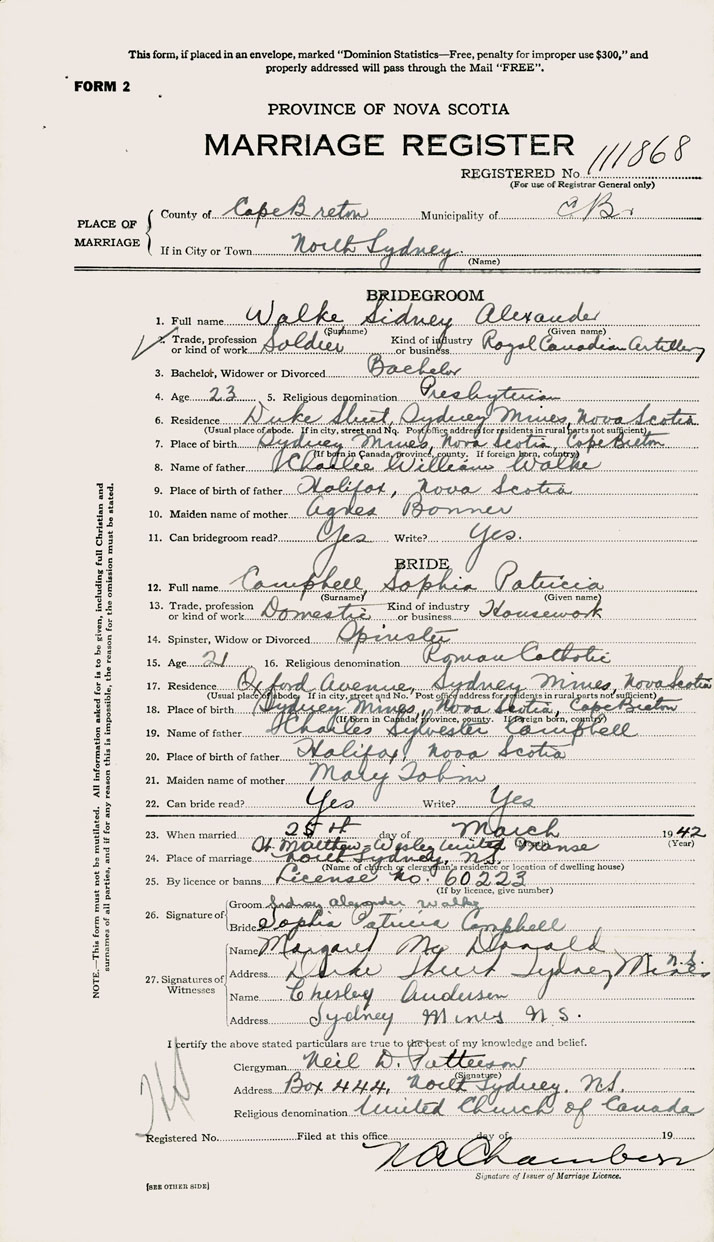 This form, if placed in an envelope, marked "Dominion Statistics—Free, penalty for improper use $300," and
properly addressed will pass through the Mail "FREE".
FORM 2
PROVINCE OF NOVA SCOTIA
MARRIAGE REGISTER
REGISTERED No. 111868
(For use of Registrar General only)
PLACE OF MARRIAGE
County of Cape Breton Municipality of C.B.
If in City or Town North Sydney
(Name)
BRIDEGROOM
1. Full name Walke Sidney Alexander
(Surname) (Given name)
2. Trade, profession or kind of work Soldier Kind of industry or business Royal Canadian Artillery
3. Bachelor, Widower or Divorced Bachelor
4. Age 23 5. Religious denomination Presbyterian
6. Residence Duke Street, Sydney Mines, Nova Scotia
(Usual place of abode. If in city, street and No. Post office address for residents in rural parts not sufficient)
7. Place of birth Sydney Mines, Nova Scotia, Cape Breton
(If born in Canada, province, county. If foreign born, country)
8. Name of father Charlee William Walke
9. Place of birth of father Halifax, Nova Scotia
10. Maiden name of mother Agnes Bonner
11. Can bridegroom read? Yes Write? Yes.
BRIDE
12. Full name Campbell, Sophia Patricia
(Surname) (Given name)
13. Trade, profession or kind of work Domestic Kind of industry or business Housework
14. Spinster, Widow or Divorced Spinster
15. Age 21 16. Religious denomination Roman Catholic
17. Residence Oxford Avenue, Sydney Mines, Nova Scotia
(Usual place of abode. If in city, street and No. Post office address for residents in rural parts not sufficient)
18. Place of birth Sydney Mines, Nova Scotia, Cape Breton
(If born in Canada, province, county. If foreign born, country)
19. Name of father Charles Sylvester Campbell
20. Place of birth of father Halifax, Nova Scotia
21. Maiden name of mother Mary Tobin
22. Can bride read? Yes Write? Yes
23. When married 25th day of March 1942
(Year)
St. Matthew-Wesley United Manse
24. Place of marriage North Sydney, N.S.
(Name of church or clergyman's residence or location of dwelling house)
25. By licence or banns License No. 60223
(If by licence, give number)
26. Signature of
Groom Sidney Alexander Walke
Bride Sophia Patricia Campbell
27. Signatures of Witnesses
Name Margaret Mc Donald
Address Duke Street Sydney Mines N.S.
Name Chesley Andersen
Address Sydney Mines N.S.
I certify the above stated particulars are true to the best of my knowledge and belief.
Clergyman Neil D. Patterson
(Signature)
Address Box 444, North Sydney. N.S.
Religious denomination United Church of Canada
Registered No. Filed at this office day of 19
N A Chambers
Signature of Issuer of Marriage Licence.
[SEE OTHER SIDE]
NOTE.—This form must not be mutilated. All information asked for is to be given, including full Christian and
surnames of all parties, and if for any reason this is impossible, the reason for the omission must be stated.